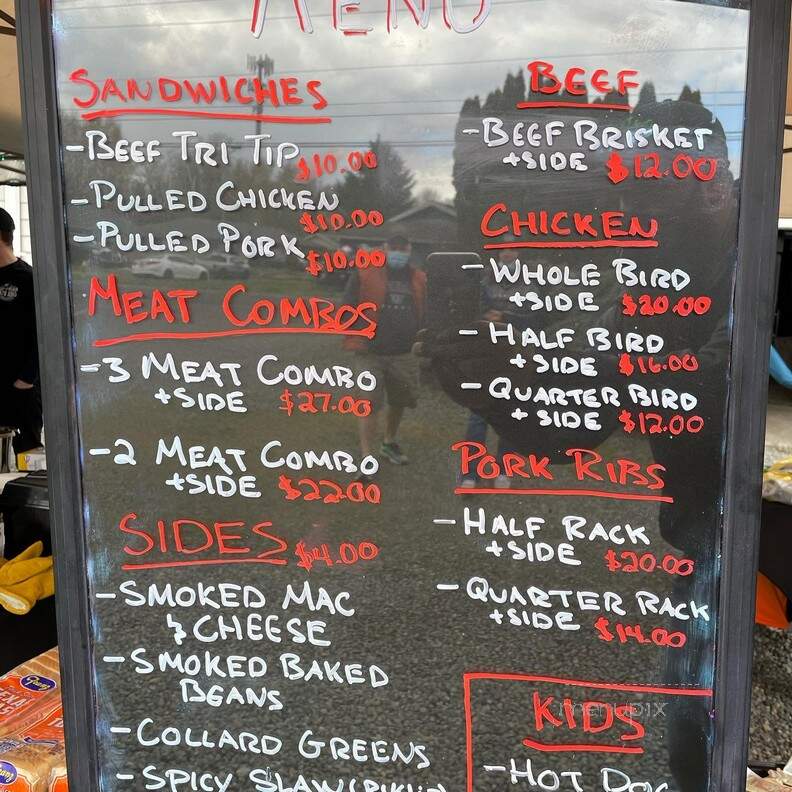 MENU
SANDWICHES
-BEEF TRI TIP $10.00
-PULLED CHICKEN $10.00
-PULLED PORK $10.00
MEAT COMBOS
-3 MEAT COMBO
+SIDE $27.00
-2 MEAT COMBO
+SIDE $22.00
SIDES $4.00
-SMOKED MAC
& CHEESE
-SMOKED BAKED
BEANS
-COLLARD GREENS
-SPICY SLAW
BEEF
-BEEF BRISKET
+SIDE $12.00
CHICKEN
-WHOLE BIRD
+SIDE $20.00
-HALF BIRD
+SIDE $16.00
-QUARTER BIRD
+SIDE $12.00
PORK RIBS
-HALF RACK
+SIDE $20.00
-QUARTER RACK
+SIDE $14.00
KIDS
menupix
-HOT DOG